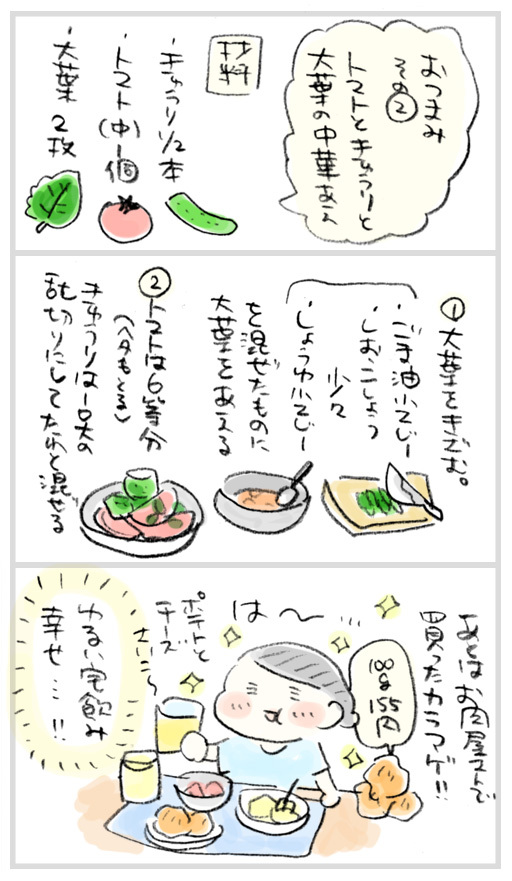 おつまみ
その②
トマトときゅうりと
大葉の中華あえ
材料
・きゅうり1/2本
・トマト(中)1個
・大葉 2枚
①大葉をきざむ。
・ごま油小さじ1
・しおこしょう
少々
・しょうゆ小さじ1
を混ぜたものに
大葉をあえる
②トマトは6等分
(ヘタもとる)
きゅうりは一口大の
乱切りにしてたれと混ぜる
あとはお肉屋さんで
買ったカラアゲ!!
100g
155
円
は〜…
ポテトと
チーズ
さいこ〜
ゆるい宅飲み
幸せ…!!